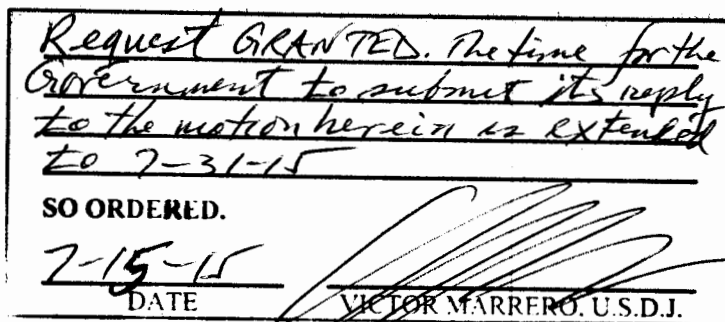 Request GRANTED. The time for the
Government to submit its reply
to the motion herein is extended
to 7-31-15
SO ORDERED.
7-15-15
DATE VICTOR MARRERO, U.S.D.J.